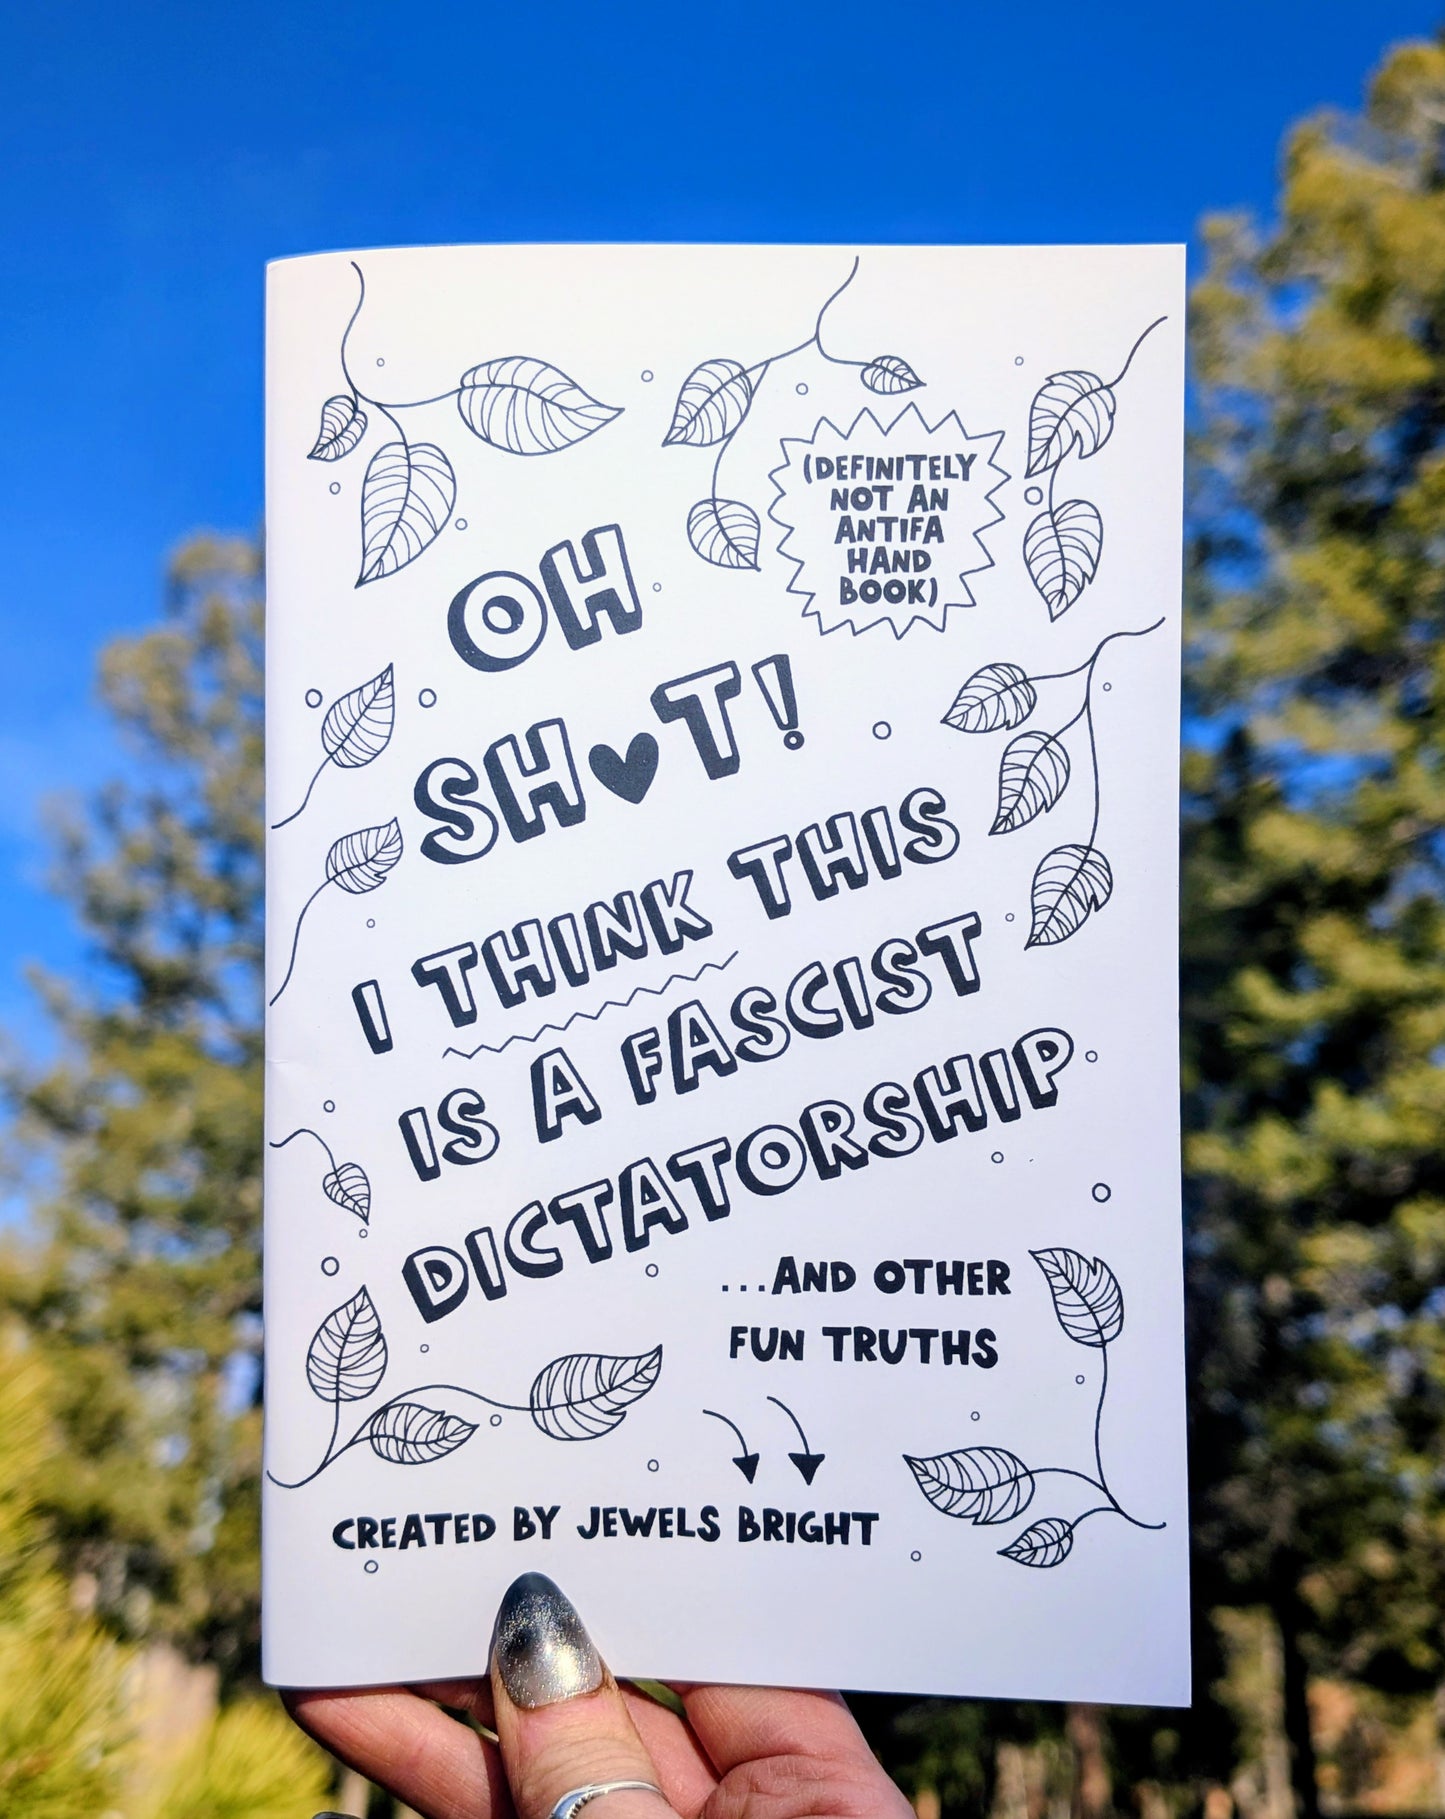 (DEFINITELY
NOT AN
ANTIFA
HAND
BOOK)
OH
SH♥T!
I THINK THIS
IS A FASCIST
DICTATORSHIP
...AND OTHER
FUN TRUTHS
CREATED BY JEWELS BRIGHT